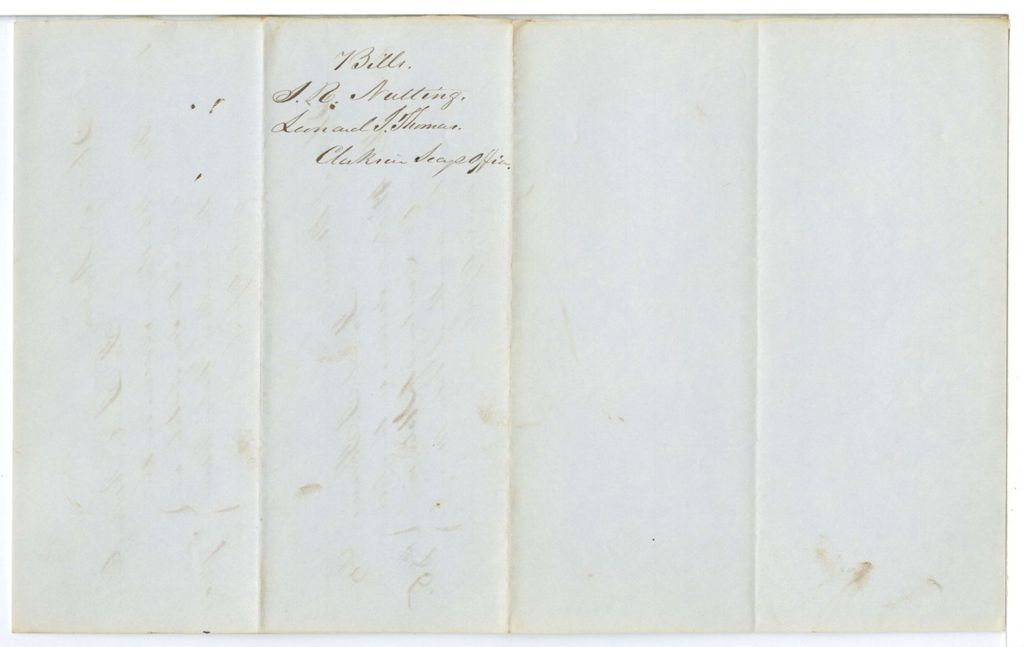 Bills.
S. R. Nutting.
Leonard J. Thomas.
Clerks in Secy's Office.